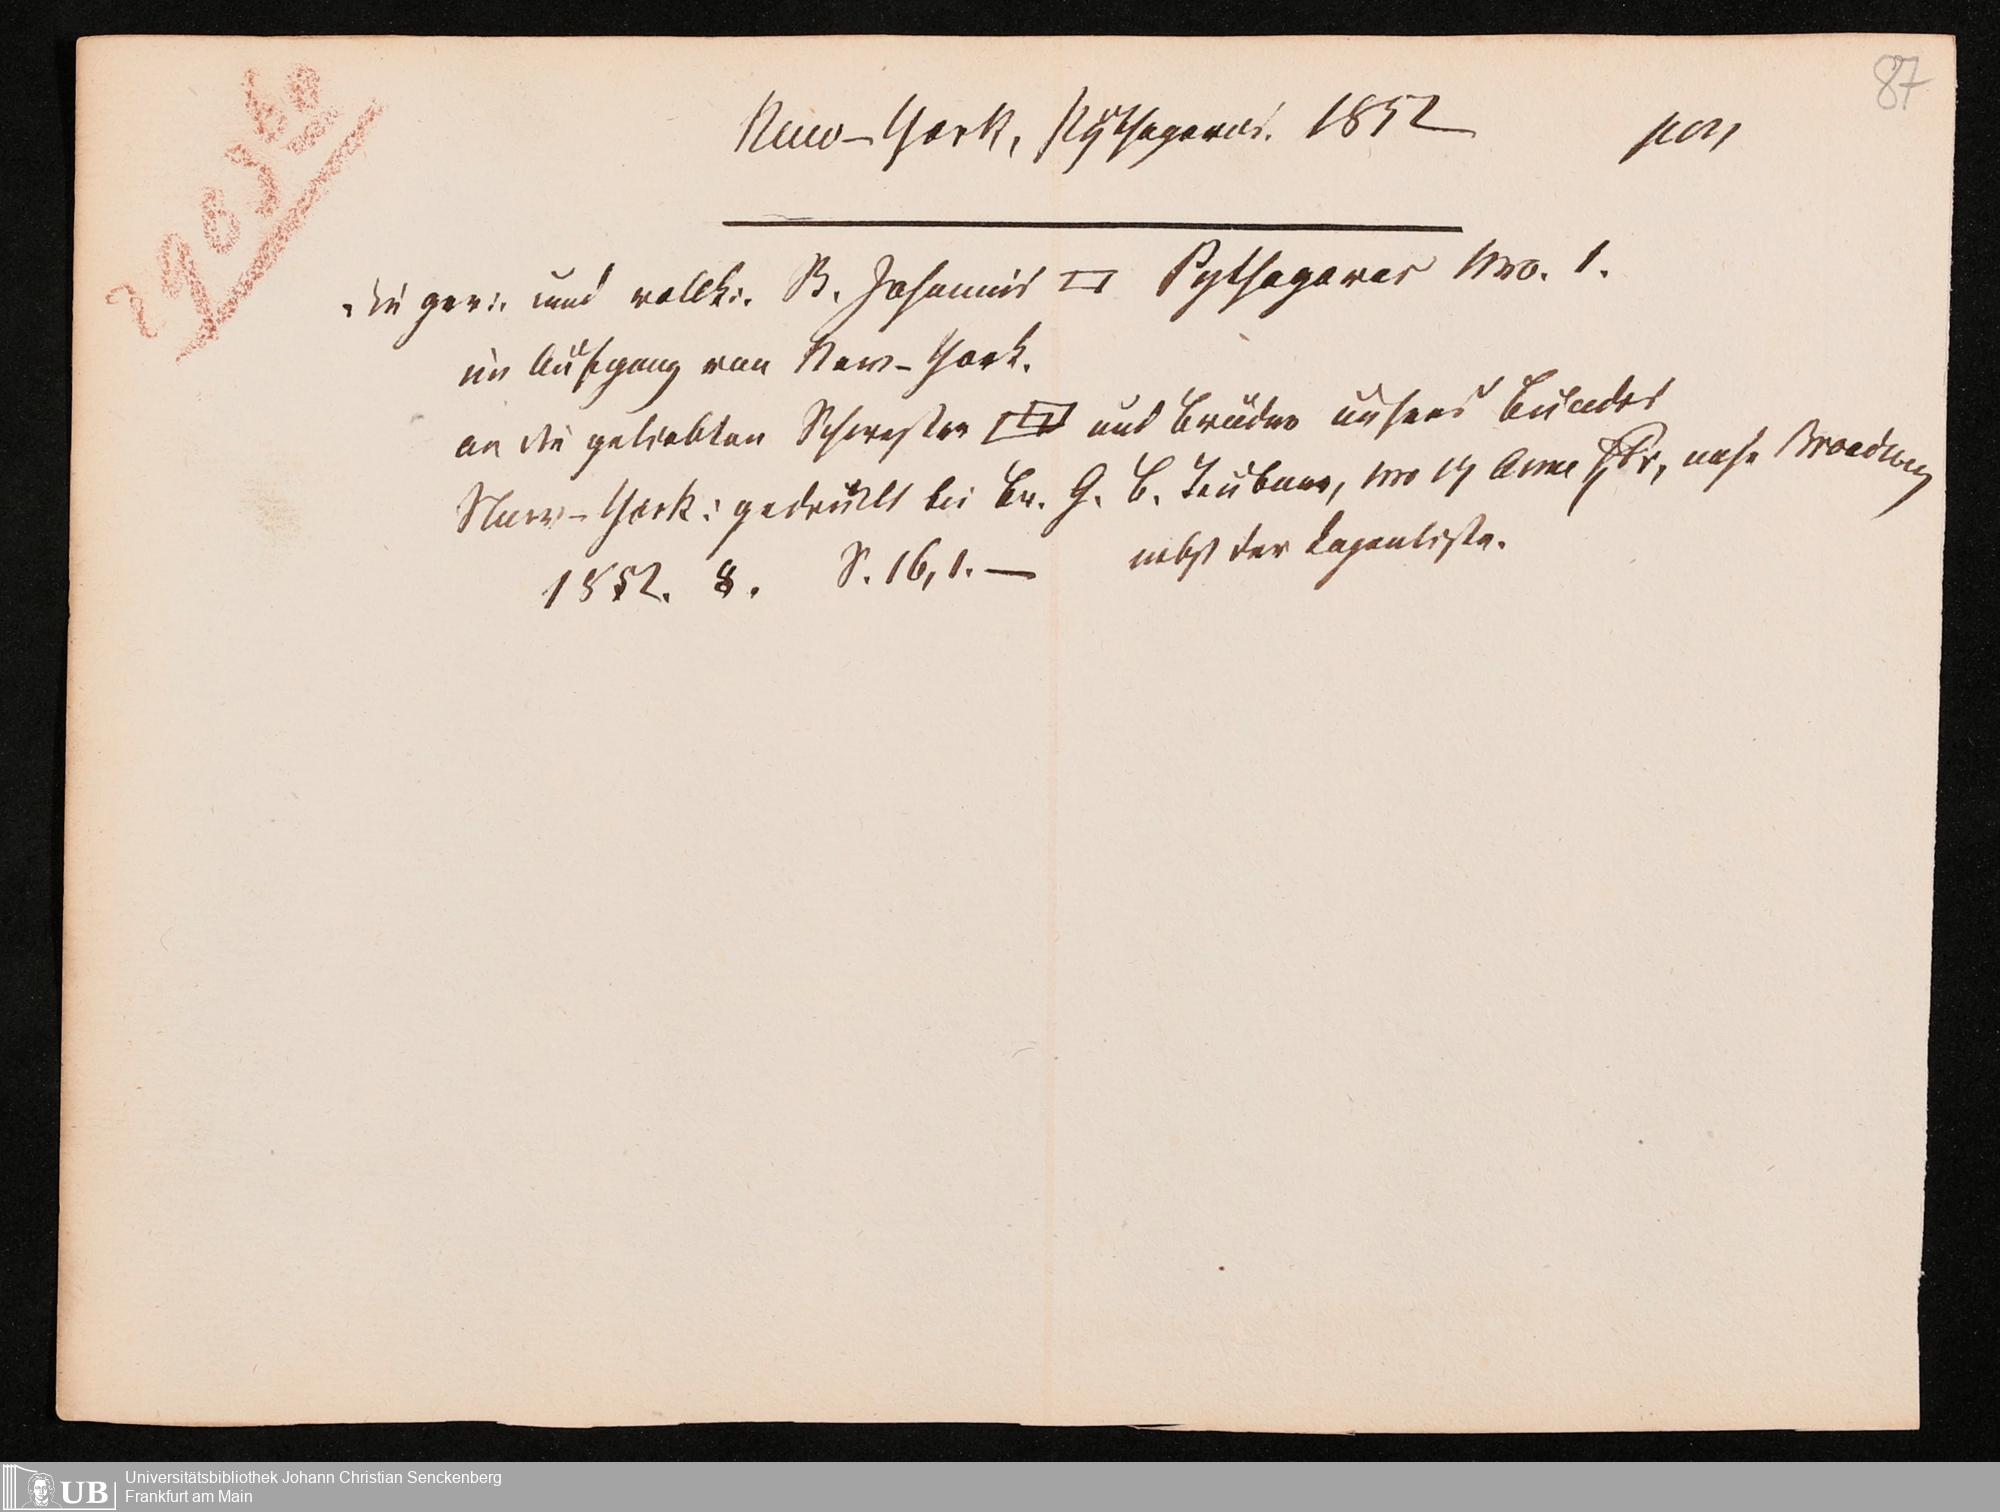 87
New-York, Pythagoras. 1852
Die ger:. und vollk:. St. Johannis □ Pythagoras Nro. 1.
im Aufgang von New-York.
an die geliebten Schwester und Brüder unsers Bundes
New-York: gedruckt bei Br. G. B. Teubner, Nro 17 Ann Str, nahe Broadway
1852. 8. S. 16, 1. — nebst der Logenliste.
Universitätsbibliothek Johann Christian Senckenberg
Frankfurt am Main
UB